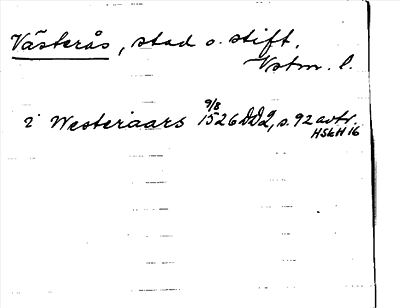 Västerås, stad o. stift.
Vstm. l.
i Westeraars 9/8 1526 DD2, s. 92 avtr.
HSkH 16